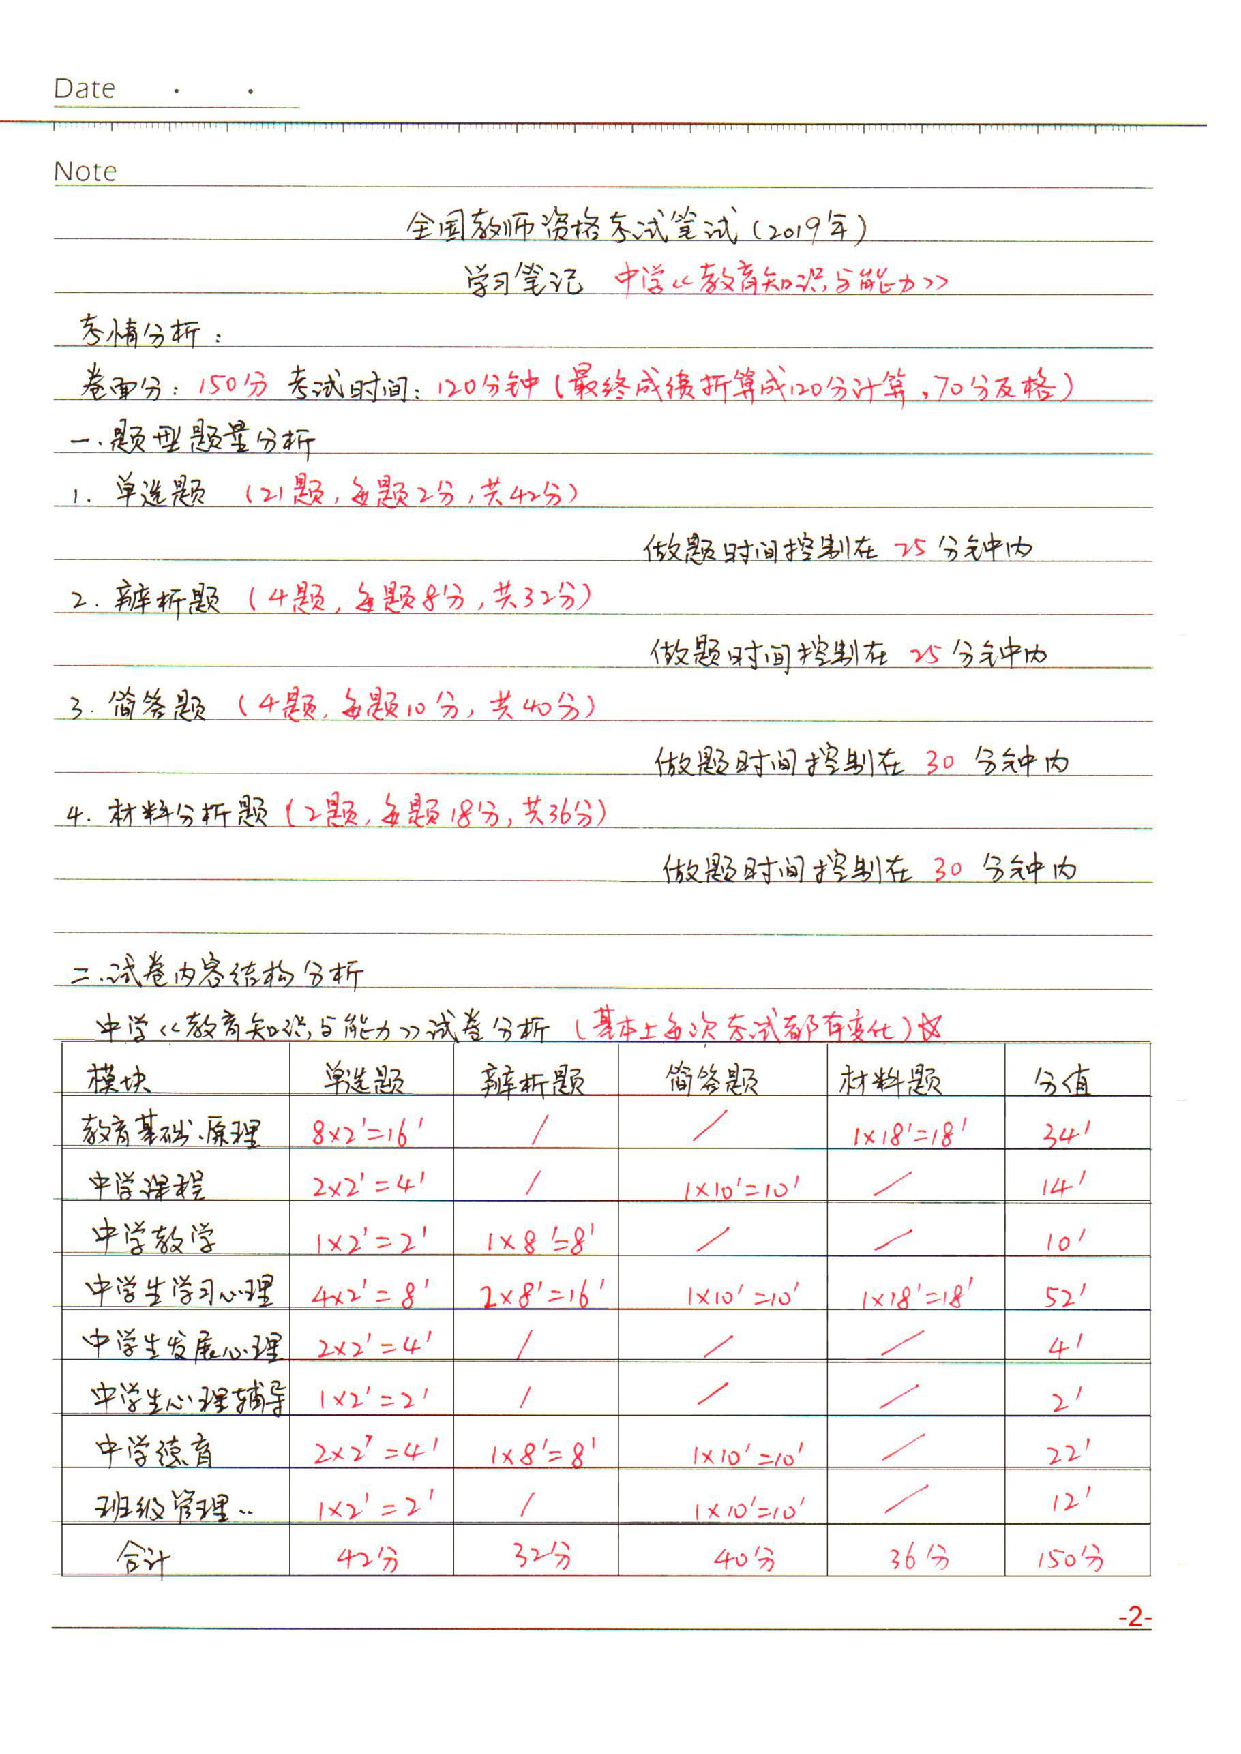 Date
Note
全国教师资格考试笔试(2019年)
学习笔记 中学《教育知识与能力》
考情分析:
卷面分:150分 考试时间:120分钟(最终成绩折算成120分计算,70分及格)
一.题型题量分析
1. 单选题 (21题,每题2分,共42分)
做题时间控制在 25 分钟内
2. 辨析题 (4题,每题8分,共32分)
做题时间控制在 25 分钟内
3. 简答题 (4题,每题10分,共40分)
做题时间控制在 30 分钟内
4. 材料分析题(2题,每题18分,共36分)
做题时间控制在 30 分钟内
二.试卷内容结构分析
中学《教育知识与能力》试卷分析 (基本上每次考试都有变化)☆
模块 单选题 辨析题 简答题 材料题 分值
教育基础.原理 8×2'=16' / / 1×18'=18' 34'
中学课程 2×2'=4' / 1×10'=10' / 14'
中学教学 1×2'=2' 1×8'=8' / / 10'
中学生学习心理 4×2'=8' 2×8'=16' 1×10'=10' 1×18'=18' 52'
中学生发展心理 2×2'=4' / / / 4'
中学生心理辅导 1×2'=2' / / / 2'
中学德育 2×2'=4' 1×8'=8' 1×10'=10' / 22'
班级管理.. 1×2'=2' / 1×10'=10' / 12'
合计 42分 32分 40分 36分 150分
-2-